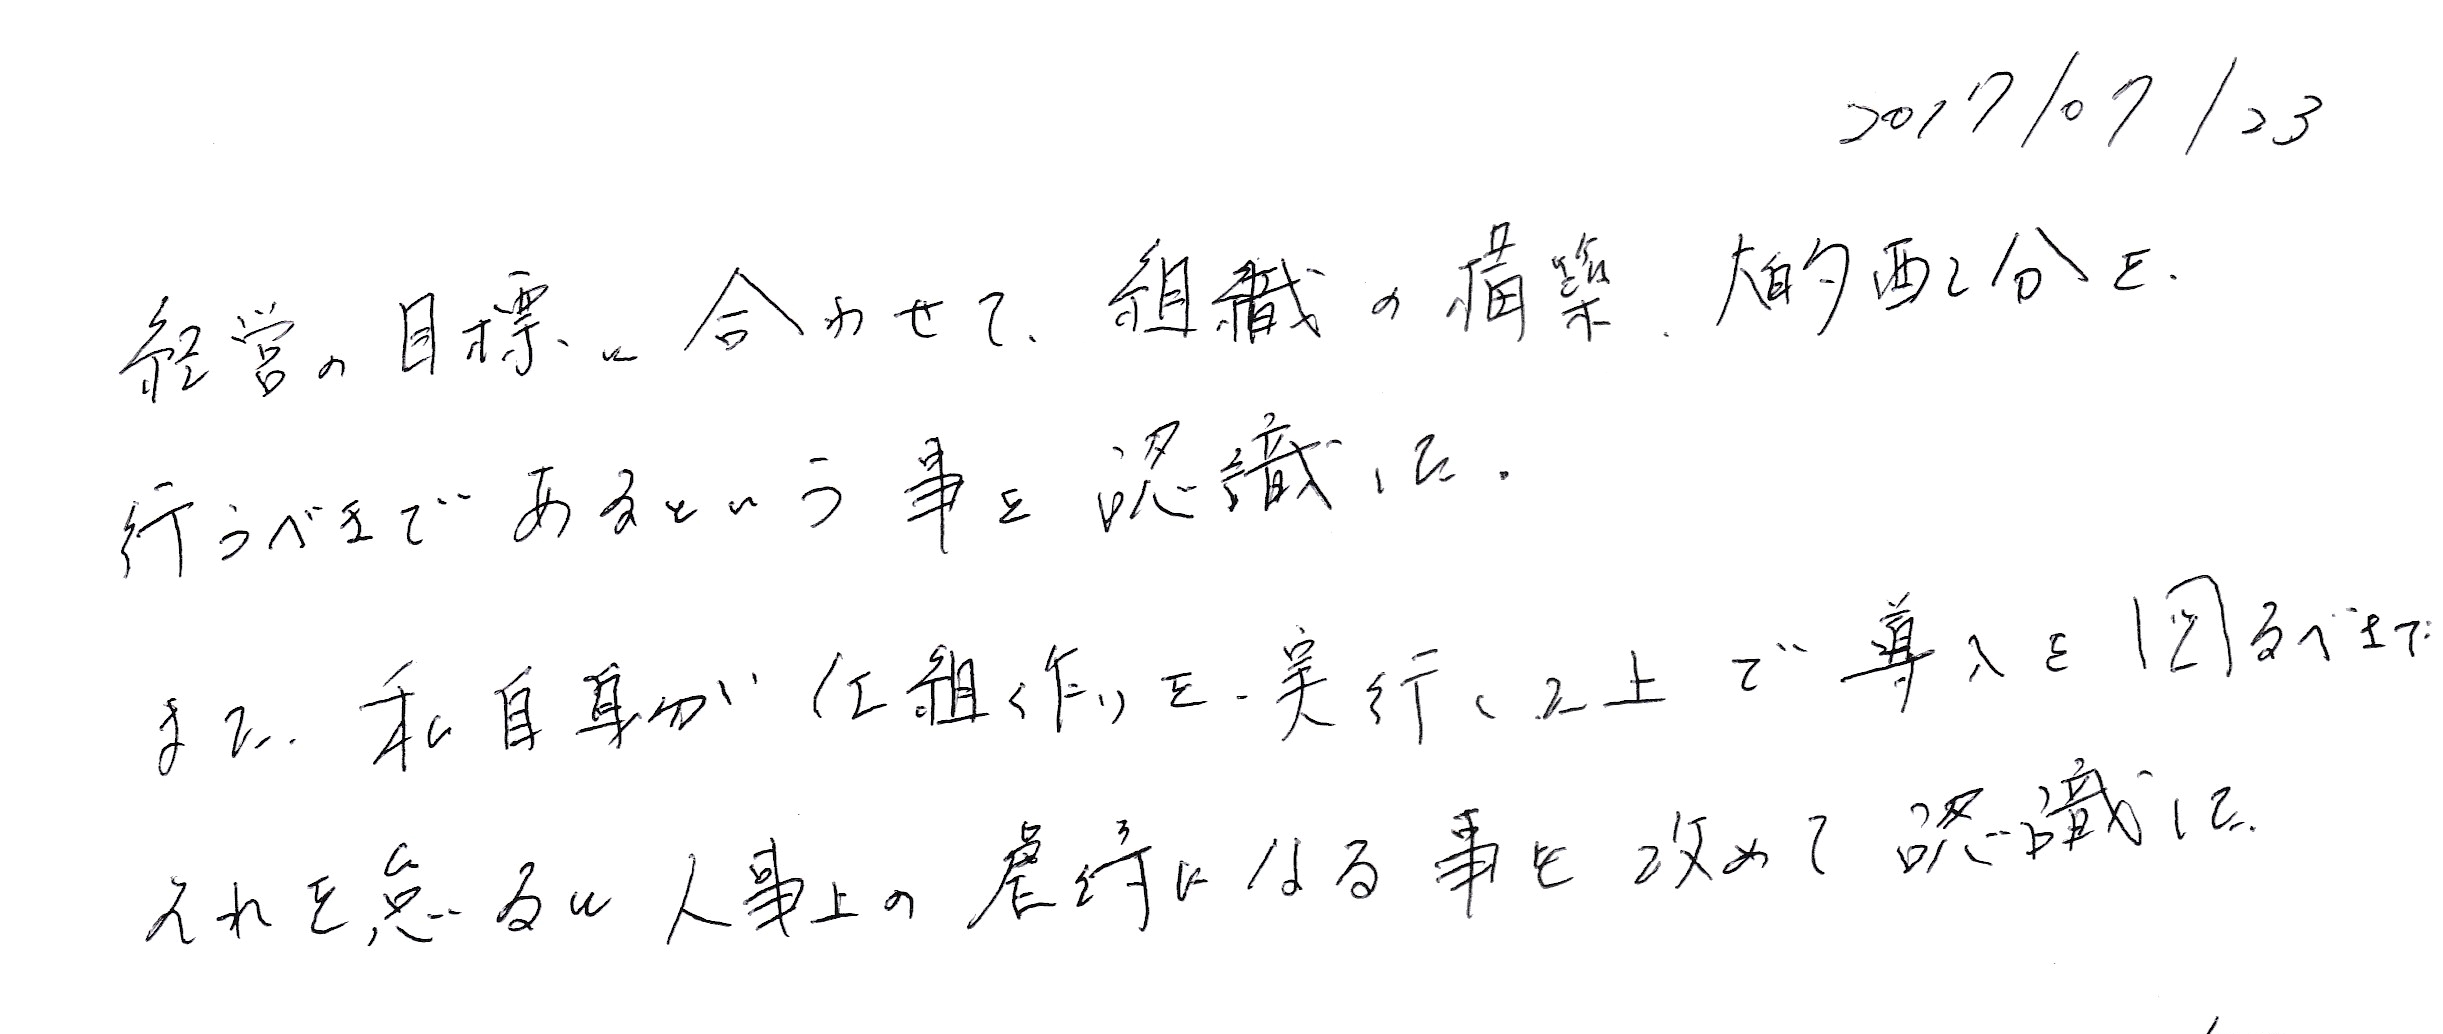 2017/07/23
経営の目標に合わせて、組織の構築、人的配分を、
行うべきであるという事を認識した。
また、私自身が仕組作りを、実行した上で導入を図るべきで
それを怠るに人事上の虐待になる事を改めて認識した。